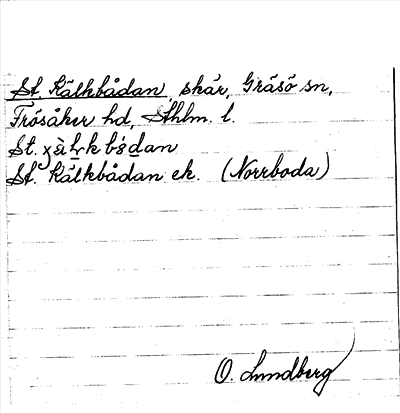 St. Kälkbådan, skär, Gräsö sn,
Frösåker hd, Sthlm. l.
St.
St. Kälkbådan ek. (Norrboda)
O. Lundberg